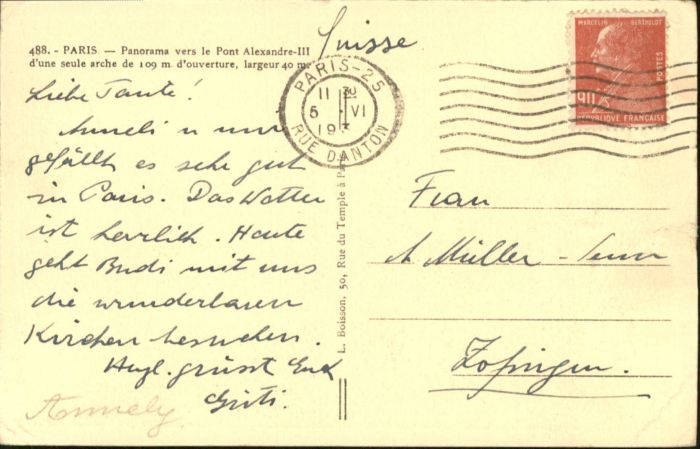 488. - PARIS. — Panorama vers le Pont Alexandre-III
d'une seule arche de 109 m. d'ouverture, largeur 40 m.
Suisse
MARCELIN BERTHELOT
POSTES
RÉPUBLIQUE FRANÇAISE
PARIS-25
11
5 VI
19
RUE DANTON
Liebe Tante!
Anneli u mir
gefällt es sehr gut
in Paris. Das Wetter
ist herrlich. Heute
geht Budi mit uns
die wunderbaren
Kirchen besuchen.
Herzl. grüsst Euch
Griti.
Annely
L. Boisson, 50, Rue du Temple à
Frau
A Müller - Senn
Zofingen.